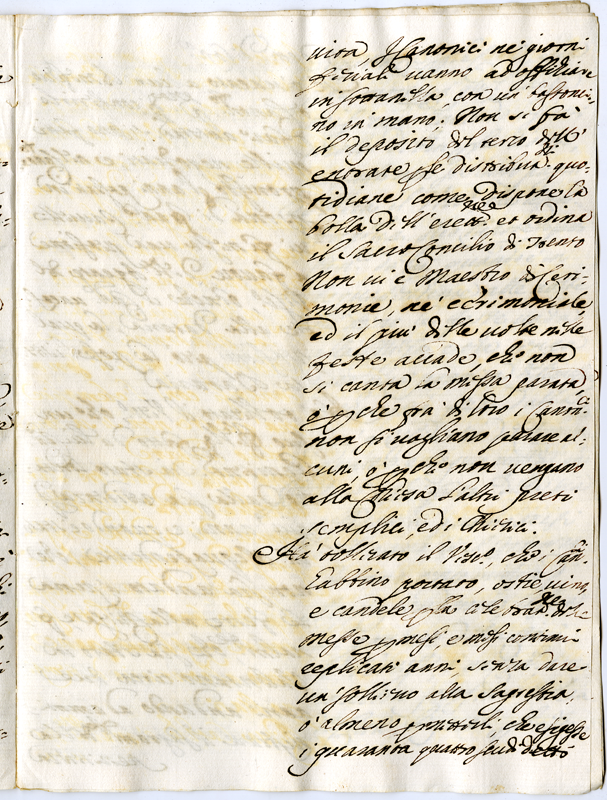 vita, I Canonici ne giorni
feriali vanno ad offitiare
in sottanella, con un bastonci-
no in mano. Non si fa
il deposito del terzo dell'
entrate p le distributi. quo-
tidiane come dispone la
bolla dell'erett.ne et ordina
il Sacro Concilio di Trento
Non vi è Maestro di Ceri-
monie, ne' cerimoniale,
ed il piu' delle volte nelle
feste accade, che non
si canta la messa parata
o' p che fra di loro i Canoni.ci
non si vogliano parare al-
cuni, o' p che non vengano
alla Chiesa l'altri preti
semplici, ed i Chierici.
Ha' tollerato il Vesc.o, che i Can.
habbino portato, ostie, vino,
e candele p la celebraz.ne delle
messe p mesi, e mesi continui
replicati anni senza dare
un sollievo alla Sagrestia,
o' almeno permetterli, che esigesse
i quaranta quattro scudi detti